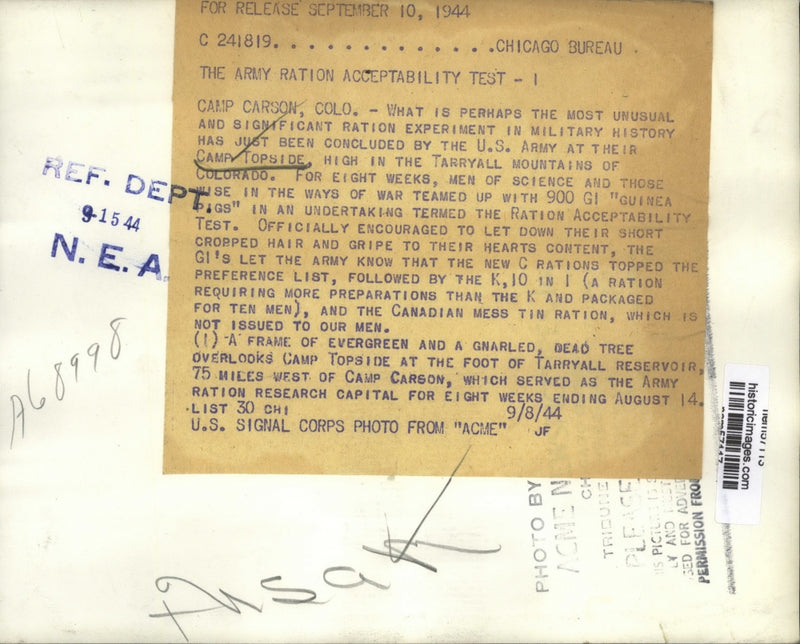 FOR RELEASE SEPTEMBER 10, 1944
C 241819. . . . . . . . . . . . . . .CHICAGO BUREAU .
THE ARMY RATION ACCEPTABILITY TEST - 1
CAMP CARSON, COLO. - WHAT IS PERHAPS THE MOST UNUSUAL
AND SIGNIFICANT RATION EXPERIMENT IN MILITARY HISTORY
HAS JUST BEEN CONCLUDED BY THE U.S. ARMY AT THEIR
CAMP TOPSIDE, HIGH IN THE TARRYALL MOUNTAINS OF
COLORADO. FOR EIGHT WEEKS, MEN OF SCIENCE AND THOSE
WISE IN THE WAYS OF WAR TEAMED UP WITH 900 GI "GUINEA
PIGS" IN AN UNDERTAKING TERMED THE RATION ACCEPTABILITY
TEST. OFFICIALLY ENCOURAGED TO LET DOWN THEIR SHORT
CROPPED HAIR AND GRIPE TO THEIR HEARTS CONTENT, THE
GI'S LET THE ARMY KNOW THAT THE NEW C RATIONS TOPPED THE
PREFERENCE LIST, FOLLOWED BY THE K, 10 IN 1 (A RATION
REQUIRING MORE PREPARATIONS THAN THE K AND PACKAGED
FOR TEN MEN), AND THE CANADIAN MESS TIN RATION, WHICH IS
NOT ISSUED TO OUR MEN.
(1) A FRAME OF EVERGREEN AND A GNARLED, DEAD TREE
OVERLOOKS CAMP TOPSIDE AT THE FOOT OF TARRYALL RESERVOIR,
75 MILES WEST OF CAMP CARSON, WHICH SERVED AS THE ARMY
RATION RESEARCH CAPITAL FOR EIGHT WEEKS ENDING AUGUST 14.
LIST 30 CHI 9/8/44
U.S. SIGNAL CORPS PHOTO FROM "ACME" JF
REF. DEPT.
9-15 44
N. E. A.
A68998
PHOTO BY
ACME N
CH
TRIBUNE
PLEASE
IS PICTURE IS
LY AND
SED FOR ADVE
PERMISSION FROM
historicimages.com